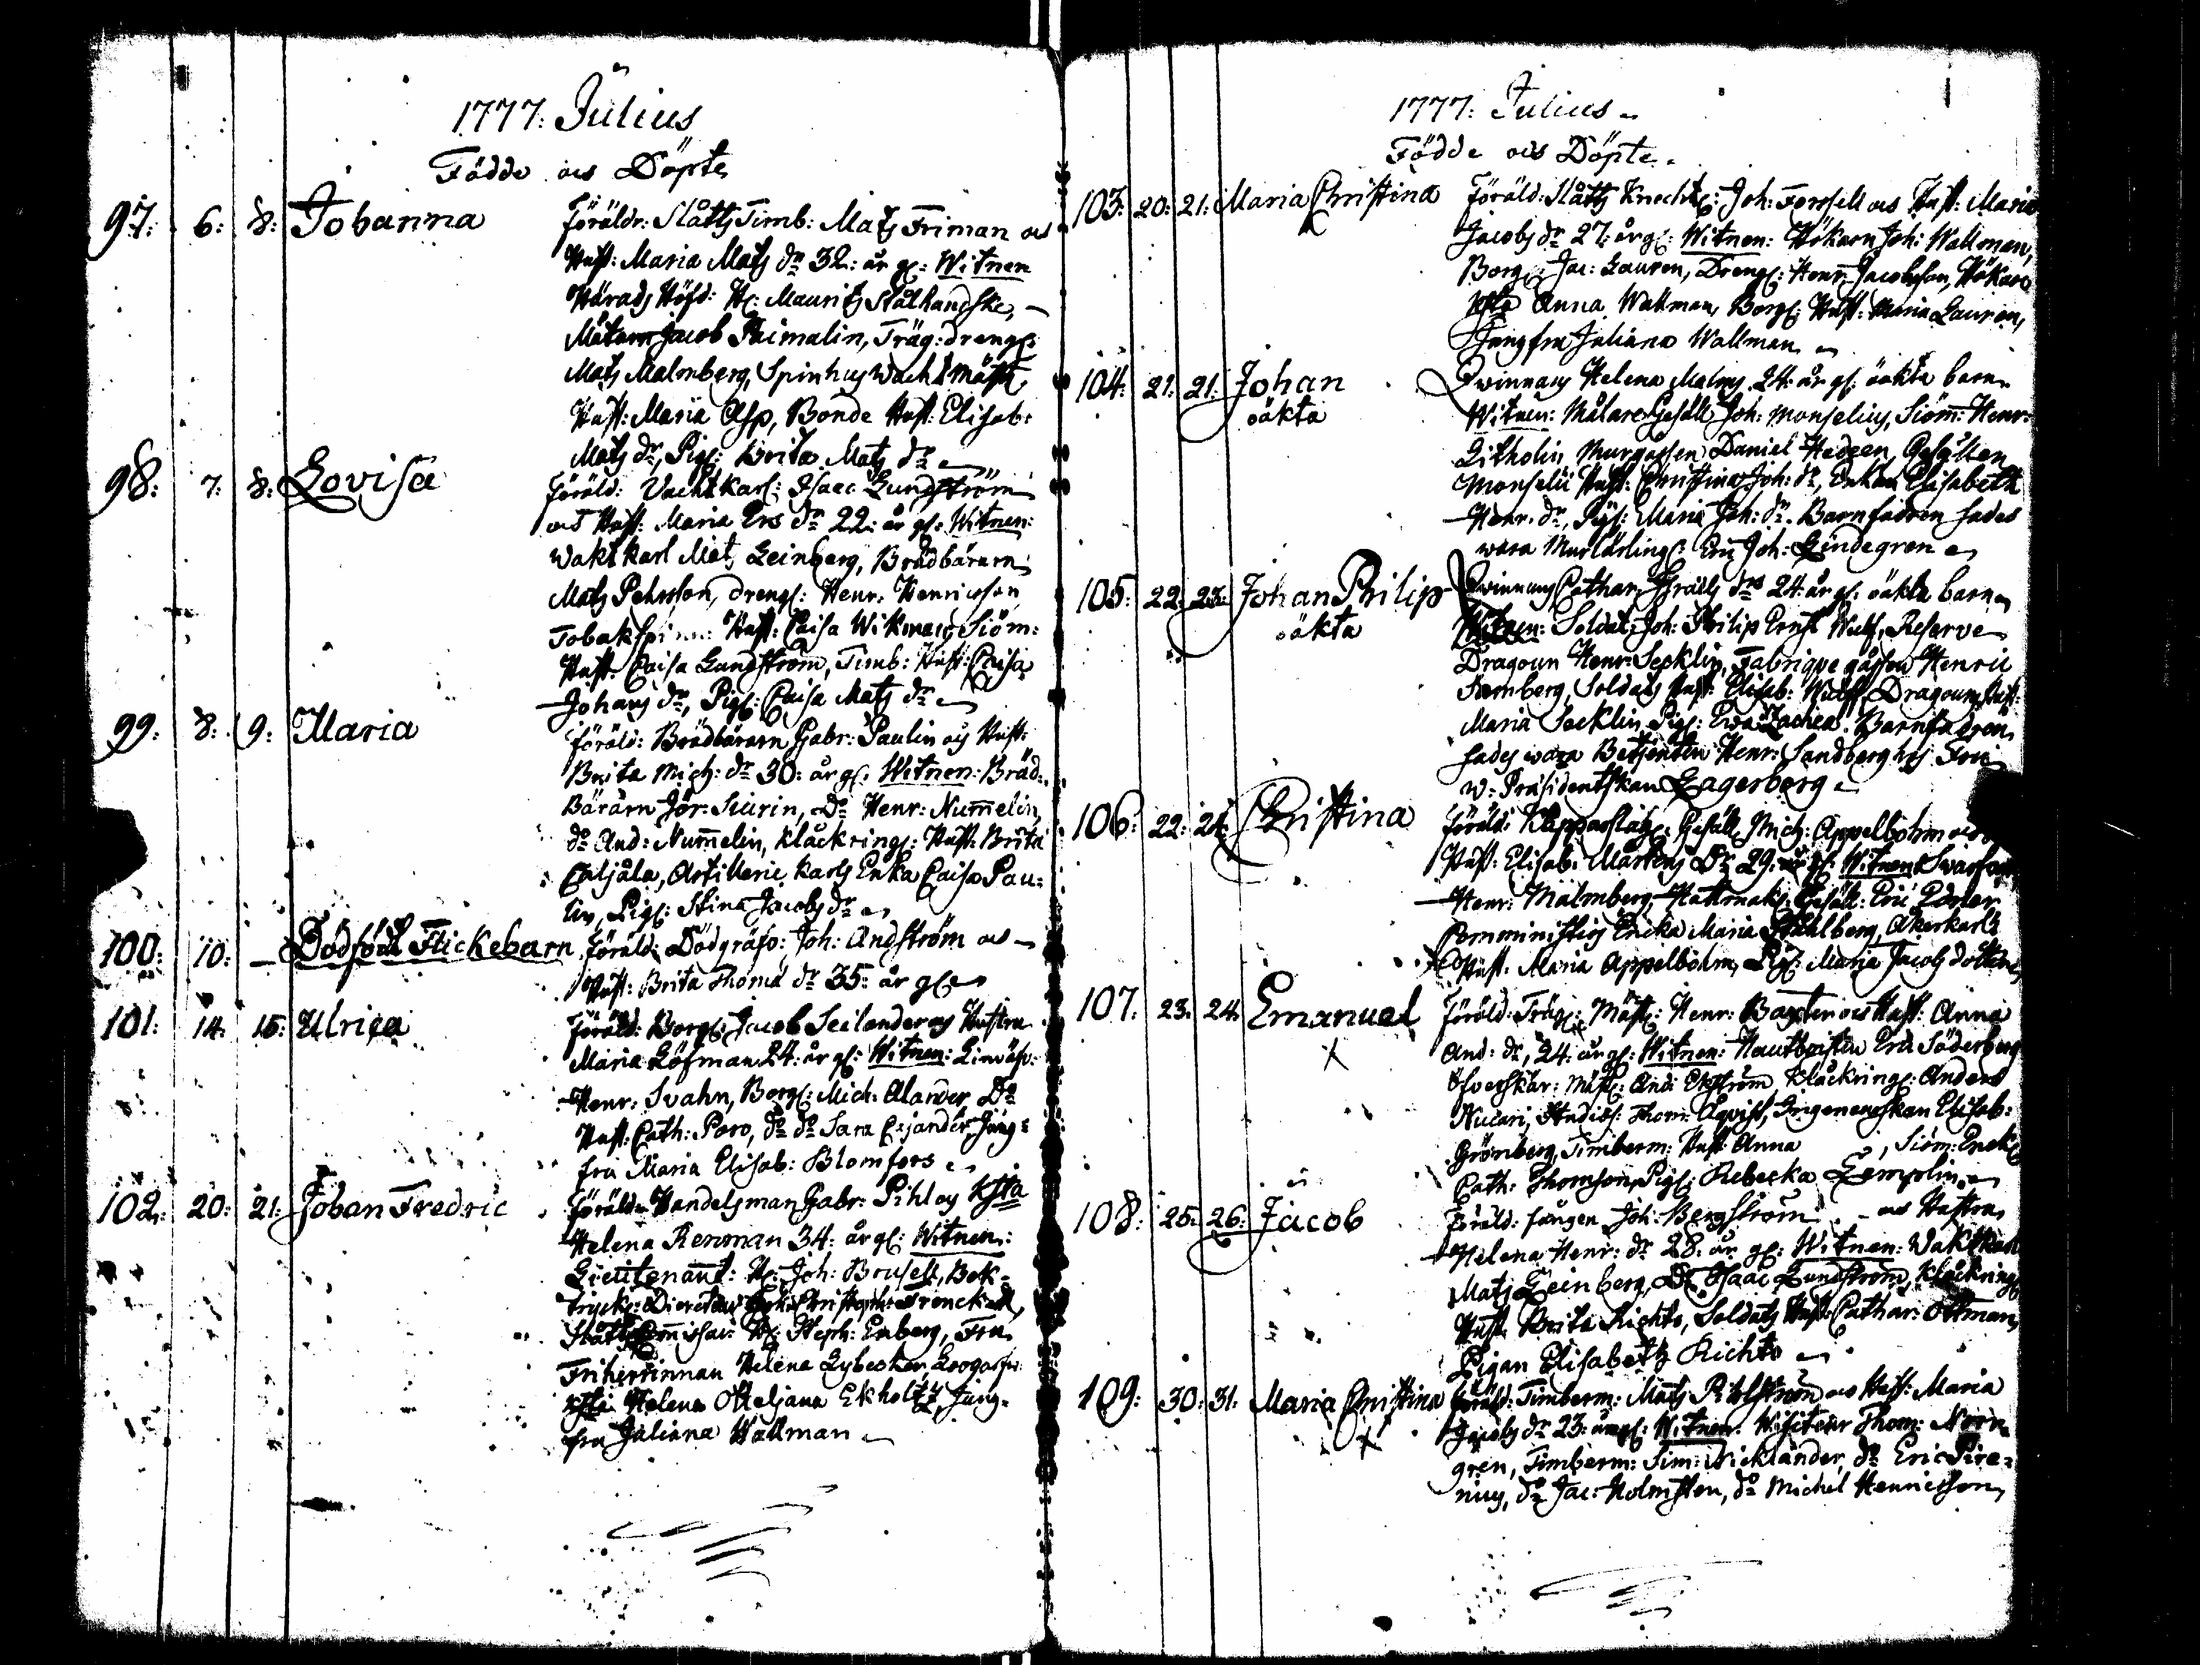 1777: Julius
Födde och Döpte
97: 6: 8: Johanna Föräldr: Slåtts Timb: Mats Friman och
Hust: Maria Mats dr 32: år gl: Witnen
Härads Höfd: H: Maurits Stålhandske,
Mätarn Jacob Heimalin, Träg: drengl:
Mats Malmberg, Spinhus Wacht mäst
Hust: Maria Asp, Bonde Hust: Elisab:
Mats dr, Pig: Brita Mats dr
98: 7: 8: Lovisa Föräld: Vacht karl: Isaac Lundström
och Hust: Maria Ers dr 22: år gl: Witnen:
Wakt karl Mat Leinberg, Brädbärarn
Mats Pehrsson, drengl: Henr: Henricsson
Tobakspinn: Hust: Caisa Wikman, Siöm:
Hust: Caisa Lundström, Timb: Hust: Caisa
Johans dr, Pig: Caisa Mats dr
99: 8: 9: Maria Föräld: Brädbärarn Gabr: Paulin och Hust:
Brita Mich: dr 30: år gl: Witnen: Bräd
Bärarn Jör: Siurin, Do Henr: Nummelin,
do And: Nummelin, Klåckring: Hust: Brita
Caljåla, Artillerie karls Enka Caisa Pau:
lin, Pig: Stina Jacobs dr
100: 10: — Dödföd Flickebarn Föräld: Dödgräfv: Joh: Andström och
Hust: Brita Thoma dr 35: år gl
101: 14: 15: Ulrica Föräld: Borg: Jacob Seilander och Hustru
Maria Löfman 24: år gl: Witnen: Linväfv:
Henr: Svahn, Borg: Mich: Alander Do
Hust: Cath: Poro, do do Sara Cajander Jung:
fru Maria Elisab: Blomfors
102: 20: 21: Johan Fredric Föräld: Handelsman Gabr: Pihl och Ksta
Helena Renman 34: år gl: Witnen:
Lieutenant: H: Joh: Brusell, Bok-
tryck: Directeur Joh: Christoph: Frenckell,
Slåtts Commissar: H: Steph: Enberg, Fru
Friherrinnan Helena Lybecker,
Ksta Helena Ottiljana Ekholtz, Jung-
fru Juliana Wallman
1777: Julius
Födde och Döpte
103: 20: 21: Maria Christina Föräld: Slåtts Knecht: Joh: Forssell och Hust: Maria
Jacobs dr 27: år gl: Witnen: Hökarn Joh: Wallman,
Borg: Jac: Lauren, Drengl: Henr: Jacobsson, Hökare
Ksta Anna Wallman, Borg: Hust: Maria Lauren,
Jungfru Juliana Wallman
104: 21: 21: Johan Qwinnans Helena Malms 24: år gl: oäkta barn
oäkta Witnen: Målare Gesäll Joh: Monselius, Siöm: Henr:
Litholin Murgåssen Daniel Hedeen, Gesällen
Monselii Hust: Christina Joh: dr, Enkan Elisabeth
Henr. dr, Pig: Maria Joh: dr. Barnfadren sades
wara Murlärling: Eric Joh: Lindegren
105: 22: 23: Johan Philip Qwinnans Cathar: Israels dr 24: år gl: oäkta barn
oäkta Witnen: Soldat: Joh: Philip Ernst Wulf, Reserve
Dragoun Henr: Secklin, Fabrique gåssen Henric
Soldats Hust: Elisab: Wulff, Dragouns Hust:
Maria Secklin, Pig: Eva Zachea. Barnfadren
sades wara Betjenten Henr: Sandberg hos Fru
w: Præsidentskan Lagerborg
106: 22: 24: Christina Föräld: Kopparslag: Gesäll Mich: Appelbohm och
Hust: Elisab: Mårtens Dr 29: år gl: Witnen Swarfvar
Henr: Malmberg, Hattmak: Gesäll: Eric
Comministers Ericka Maria Ståhlberg, Åkerkarls
Hust: Maria Appelbohm, Pig: Maria Jacobs dotter
107. 23. 24. Emanuel Föräld: Träg: Mäst: Henr: Baxter och Hust: Anna
And: dr, 24: år gl: Witnen: Hautboisten Eric Söderberg
Öfverskär: Mäst: And: Ekström, Klåckring: Anders
Nucari, Studios: Thom: Aqvist, Ingeneurskan Elisab:
Grönberg, Timberm: Hust: Anna , Siöm: Enck:
Cath: Thomson, Pig: Rebecka Lemplin
108: 25: 26: Jacob Föräld: fången Joh: Bergström och Hustru
Helena Henr: dr 28: år gl: Witnen: Waktkarl
Mats Leinberg, Do Isaac Lundström, Klåckring
Hust: Brita Richto, Soldats Hust: Cathar: Ottman,
Pigan Elisabeth Richto
109: 30: 31: Maria Christina Föräld: Timberm: Mats Pihlström och Hust: Maria
Jacobs dr 23: år gl: Witnen: Visiteur Thom: Norr
gren, Timberm: Sim: Wicklander, do Eric Sire:
nius, do Jac: Holmsten, do Michel Henricsson